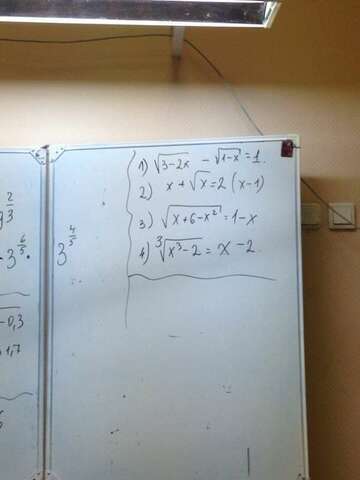 2/3
3^{6/5}.
-0,3
1,7
3^{4/5}
1) √(3-2x) - √(1-x) = 1
2) x + √x = 2 (x-1)
3) √(x+6-x²) = 1-x
4) ³√(x³-2) = x-2